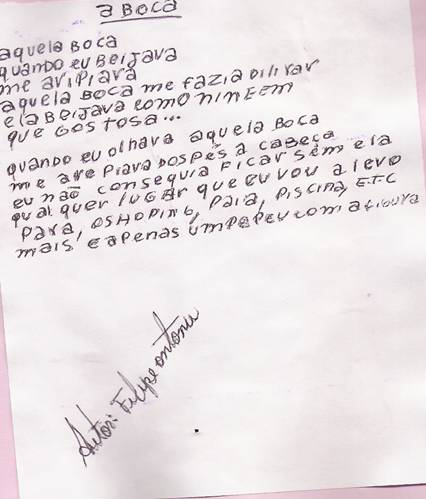 a BOCA
aquela BOCA
quando eu BeiJava
me aripiava
aquela BOCA me fazia Dilirar
ela BeiJava como ninGEEM
que Gostosa...
quando eu olhava aquela BOCA
me arepiava Dos Pés a CABEÇa
eu não conseguia Ficar sem ela
qual quer luGar que eu vou a levo
Para, oshoping, Paia, Piscina, ETC
mais, é apenas um PaPeu com a Figura
Autor: Felipe Antoniu